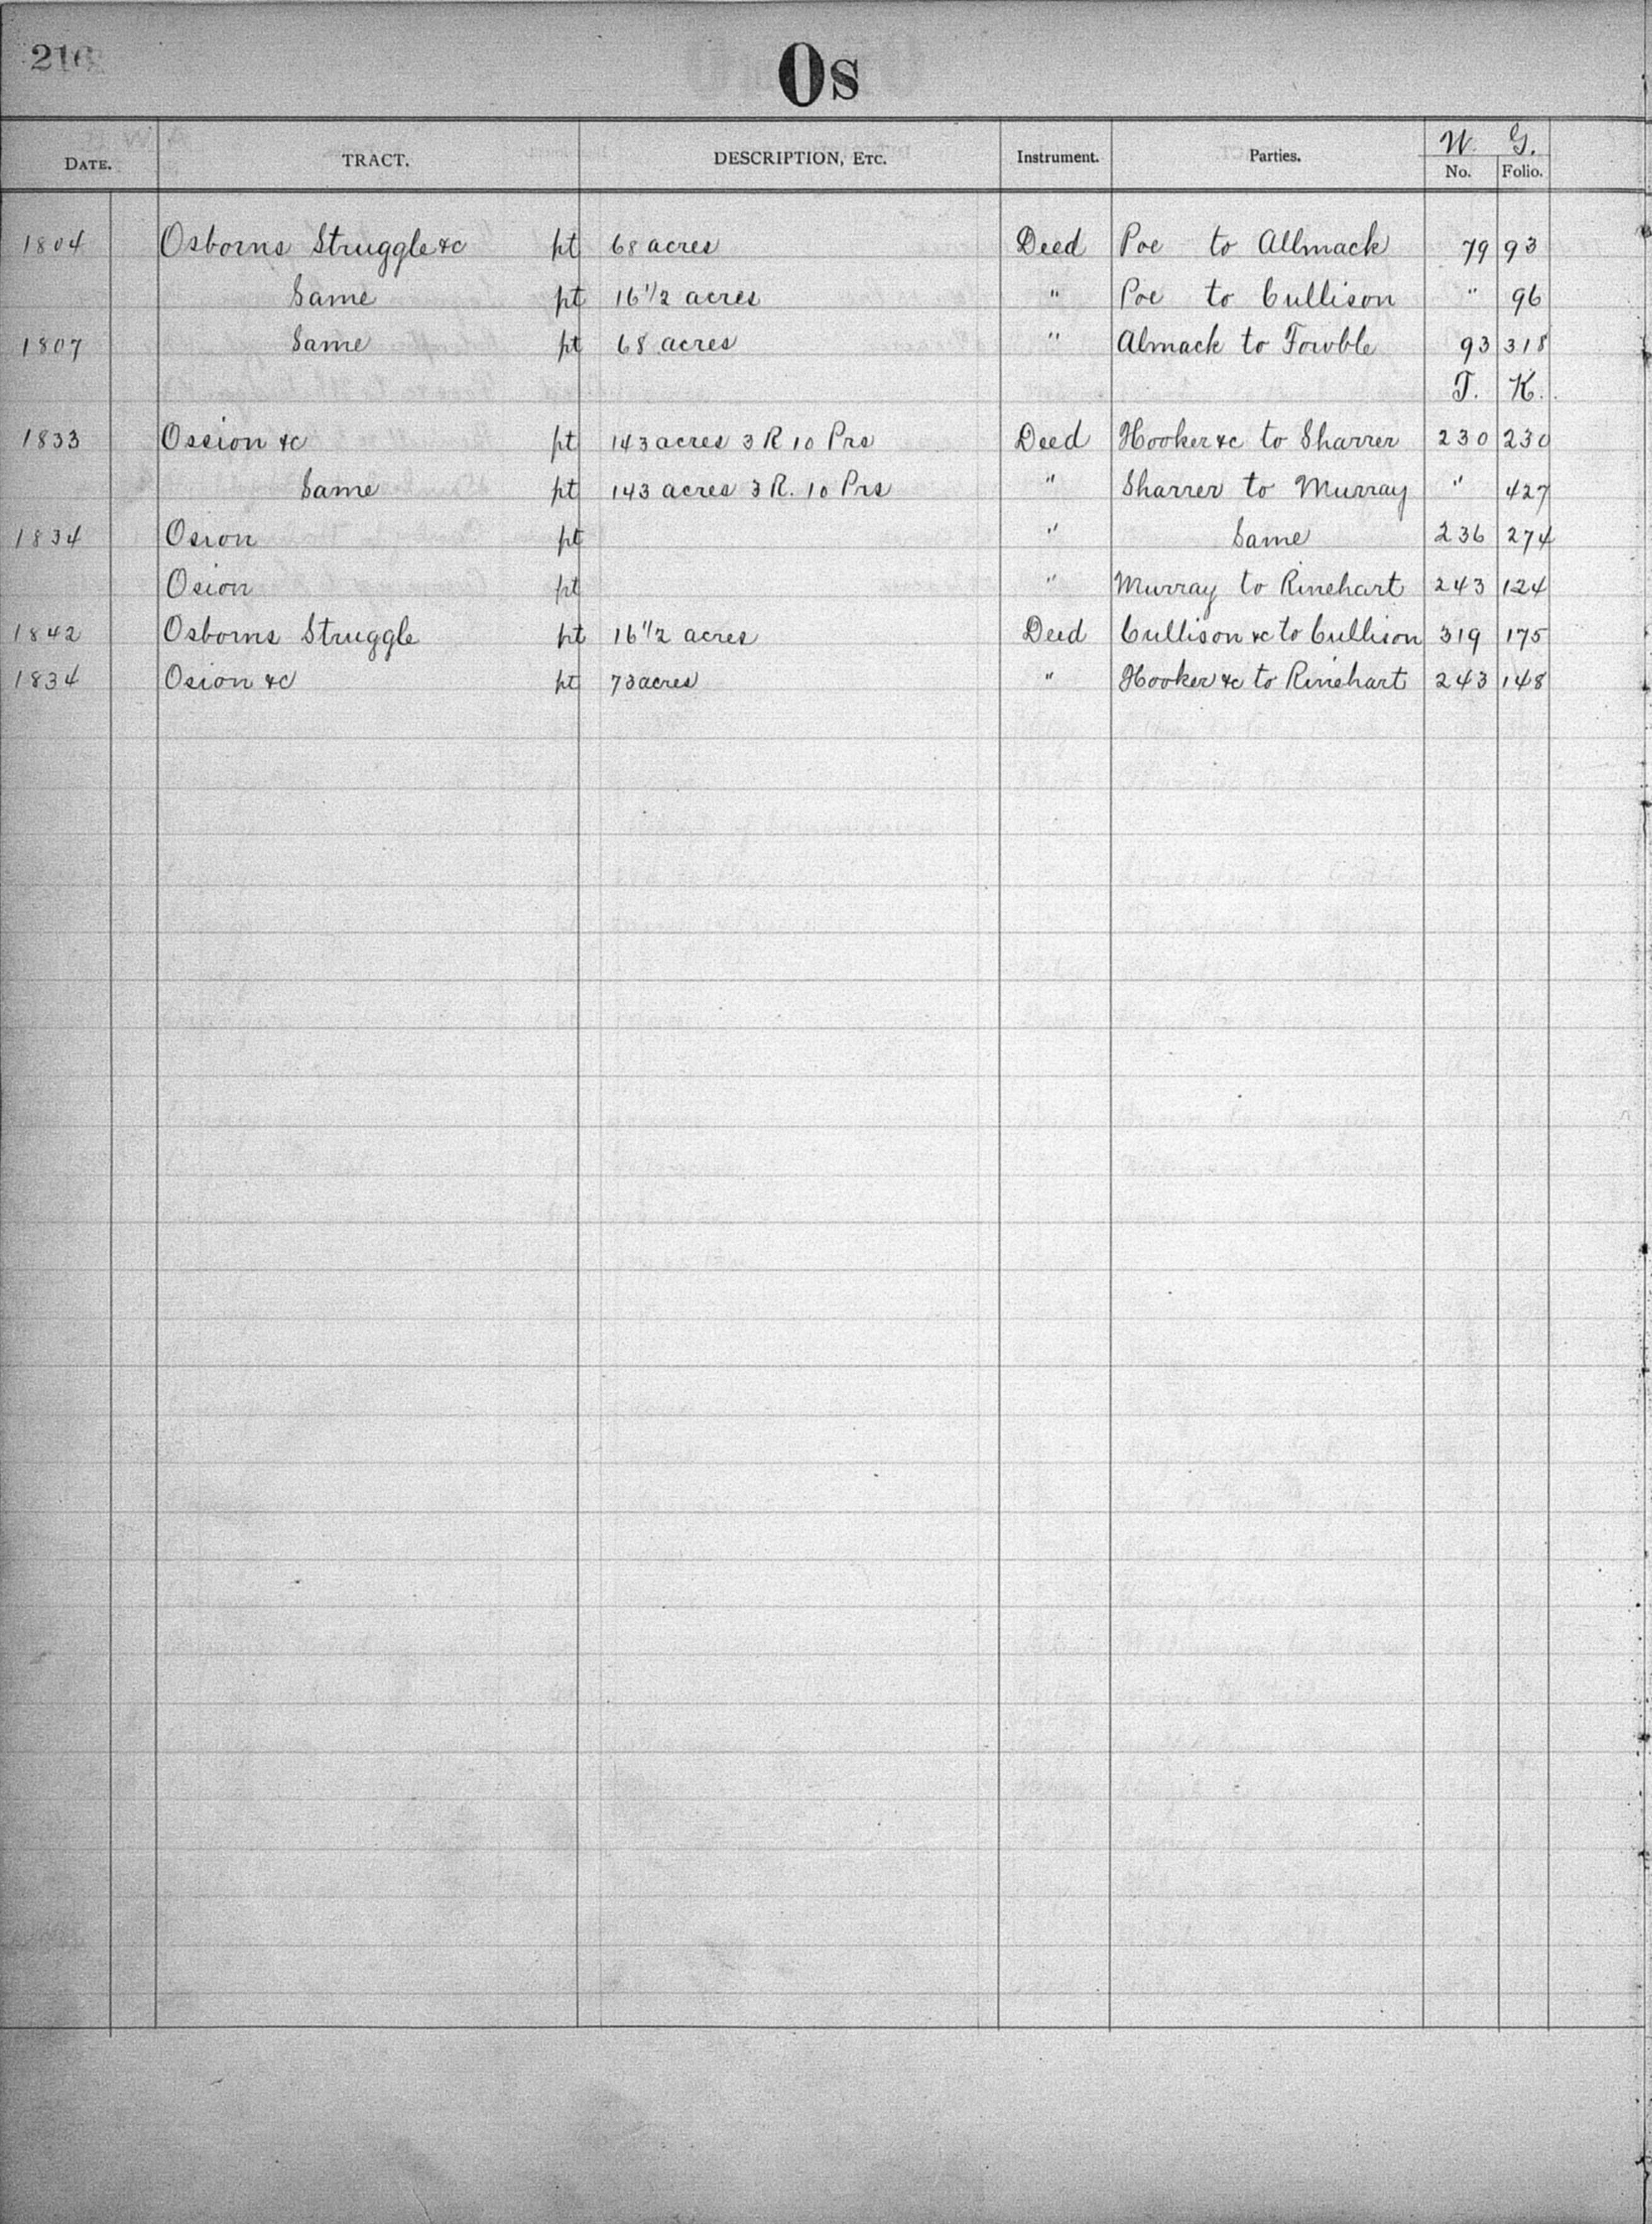 216
Os
DATE. TRACT. DESCRIPTION, ETC. Instrument. Parties. W. G. No. Folio.
1804 Osborns Struggle &c pt 68 acres Deed Poe to Allmack 79 93
Same pt 16 1/2 acres " Poe to Cullison " 96
1807 Same pt 68 acres " Almack to Fowble 93 318
T. K.
1833 Ossion &c pt 143 acres 3 R 10 Prs Deed Hooker &c to Sharrer 230 230
Same pt 143 acres 3 R. 10 Prs " Sharrer to Murray " 427
1834 Osion pt " Same 236 274
Osion pt " Murray to Rinehart 243 124
1842 Osborns Struggle pt 16 1/2 acres Deed Cullison &c to Cullison 319 175
1834 Osion &c pt 73 acres " Hooker &c to Rinehart 243 148